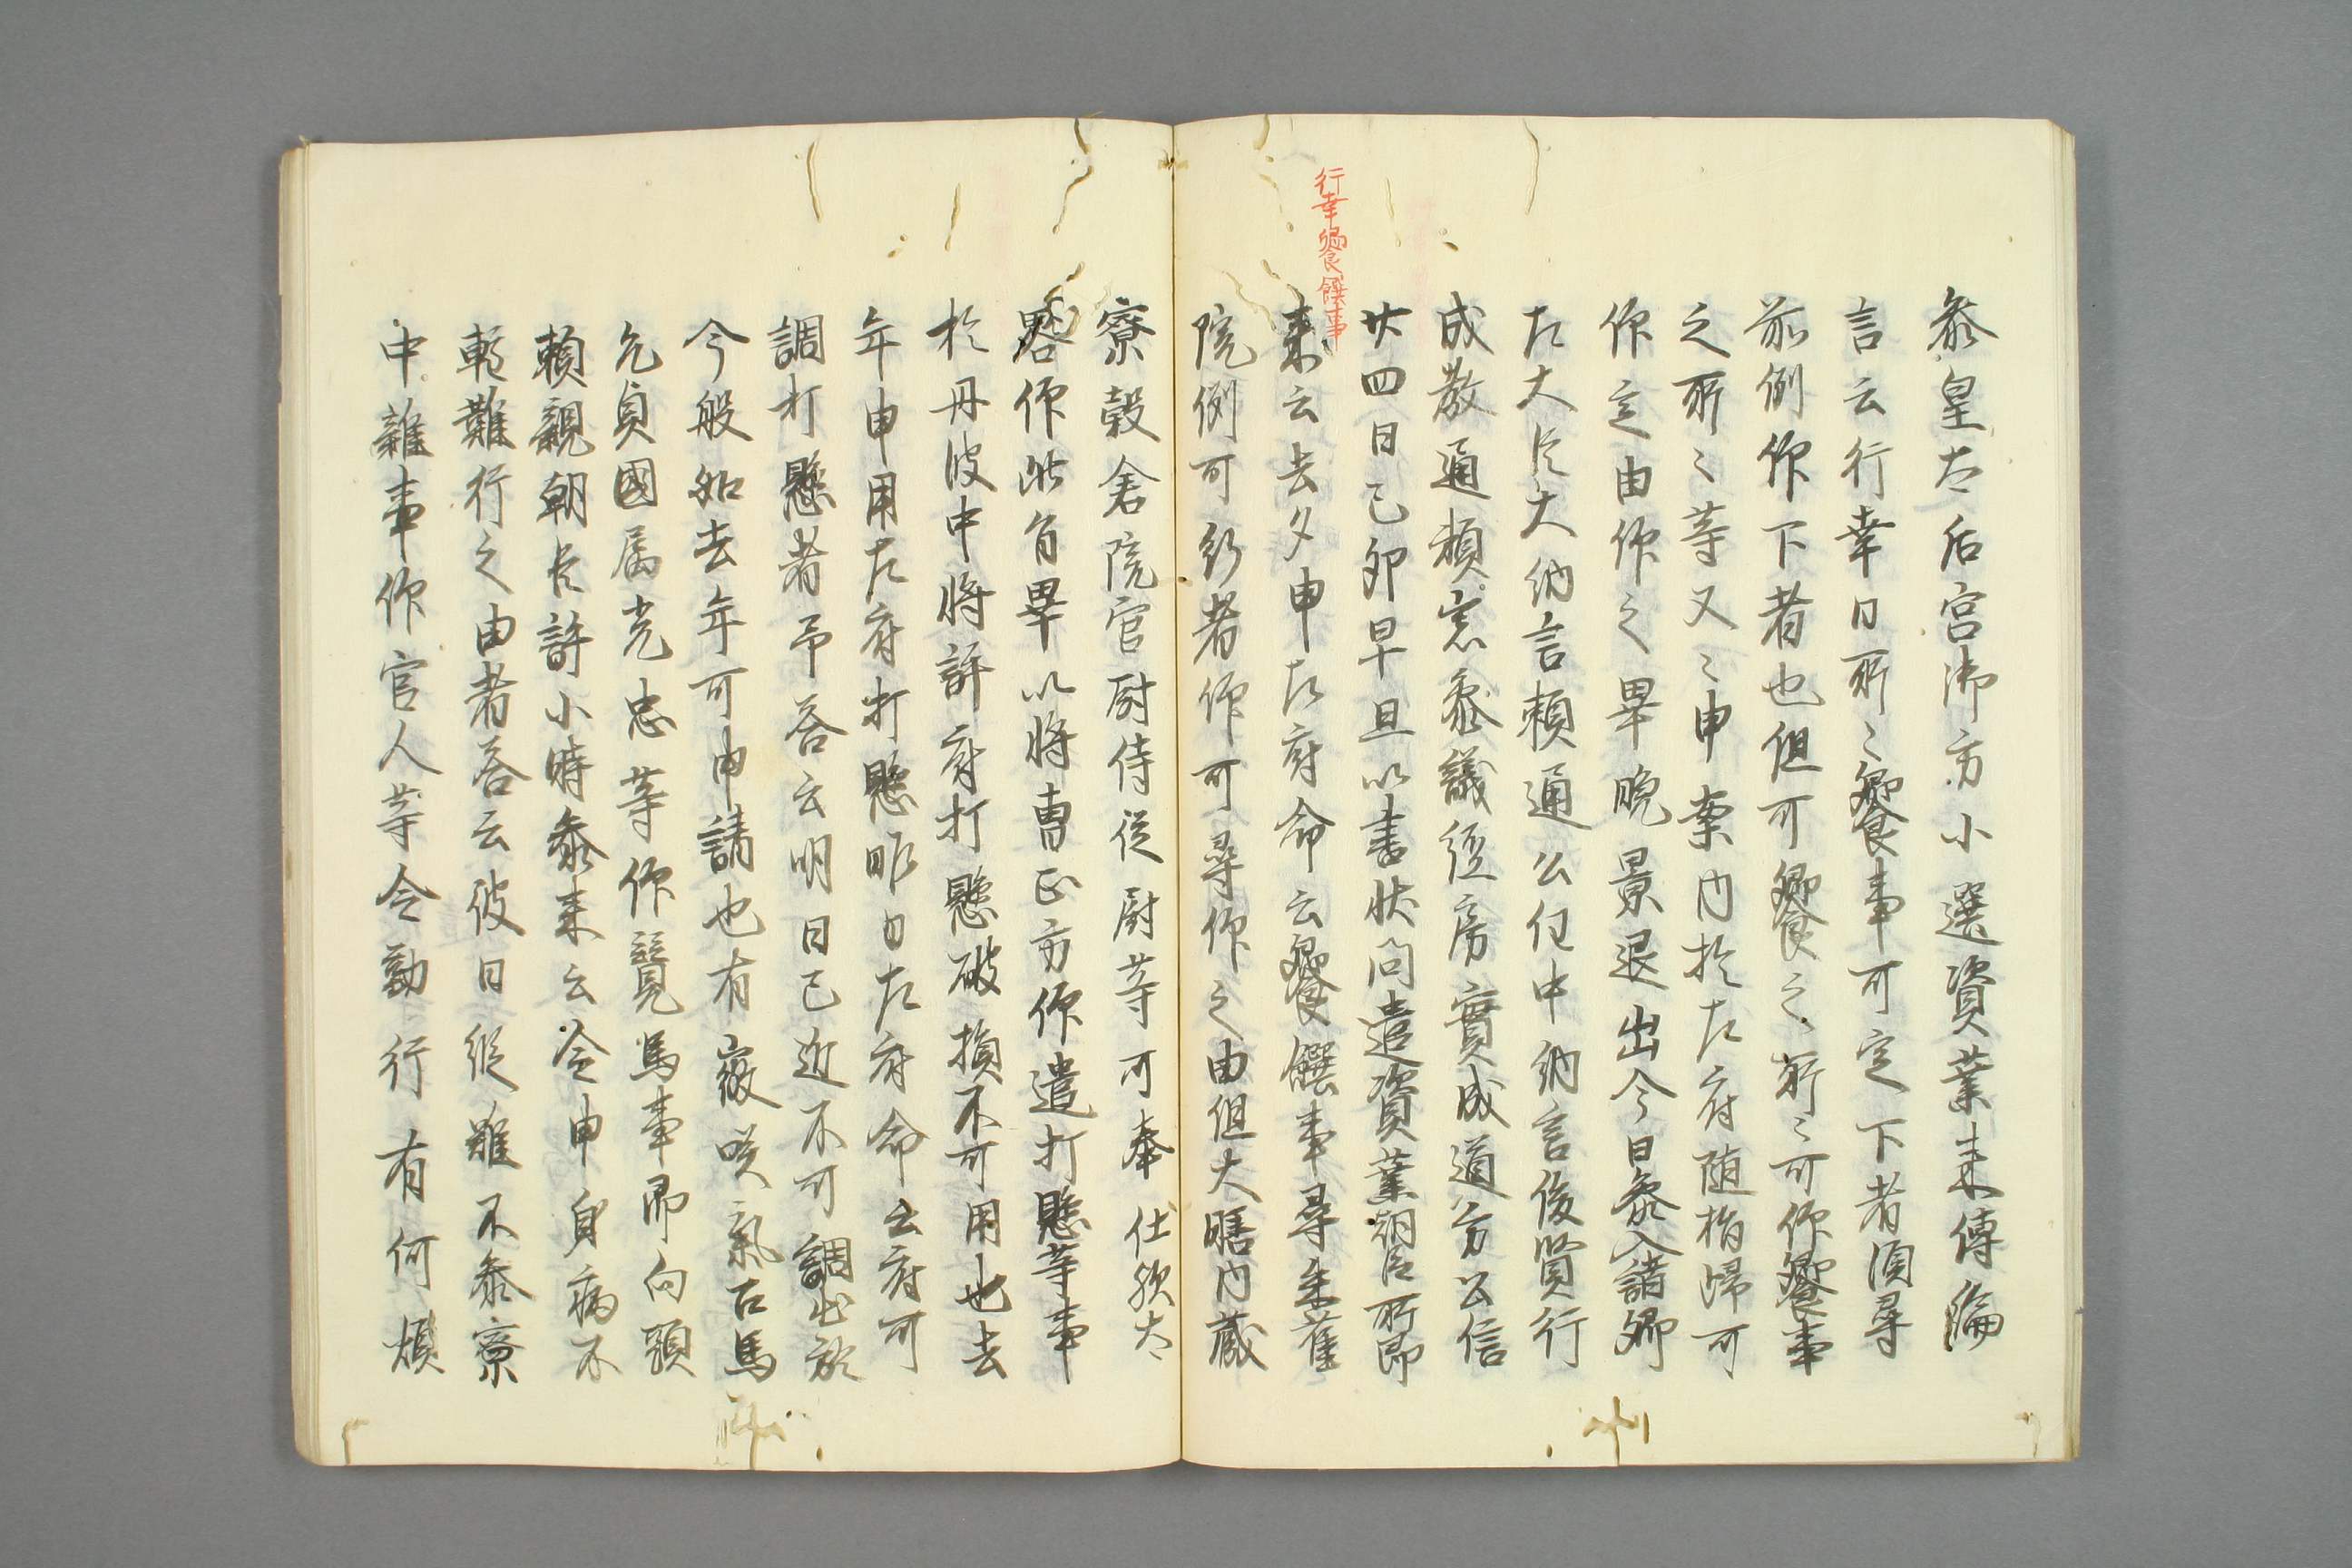 行幸饗饌事
参皇太后宮御方小選資業来傳綸
言云行幸日所〻饗事可定下者須尋
前例仰下者也但可饗之所〻可仰饗事
之所〻等又〻申案内於左府随指帰可
仰定由仰之畢晩景退出今日参入諸卿
左大臣大納言頼通公任中納言俊賢行
成教通頼宗参議経房實成道方公信
廿四日己卯早旦以書状問遣資業朝臣所即
来云去夕申左府命云饗饌事尋朱雀
院例可行者仰可尋仰之由但大膳内蔵
寮穀倉院官厨侍従厨等可奉仕歟大
略仰此旨畢以将曹正方仰遣打懸等事
於丹波中将許府打懸破損不可用也去
年申用左府打懸昨日左府命云府可
調打懸者予答云明日已近不可調出於
今般如去年可申請也有咲氣右馬
允貞國属光忠等仰覧馬事即向頭
頼親朝臣許小時参来云令申身病不
輕難行之由者答云彼日縦雖不参寮
中雑事仰官人等令勤行有何煩